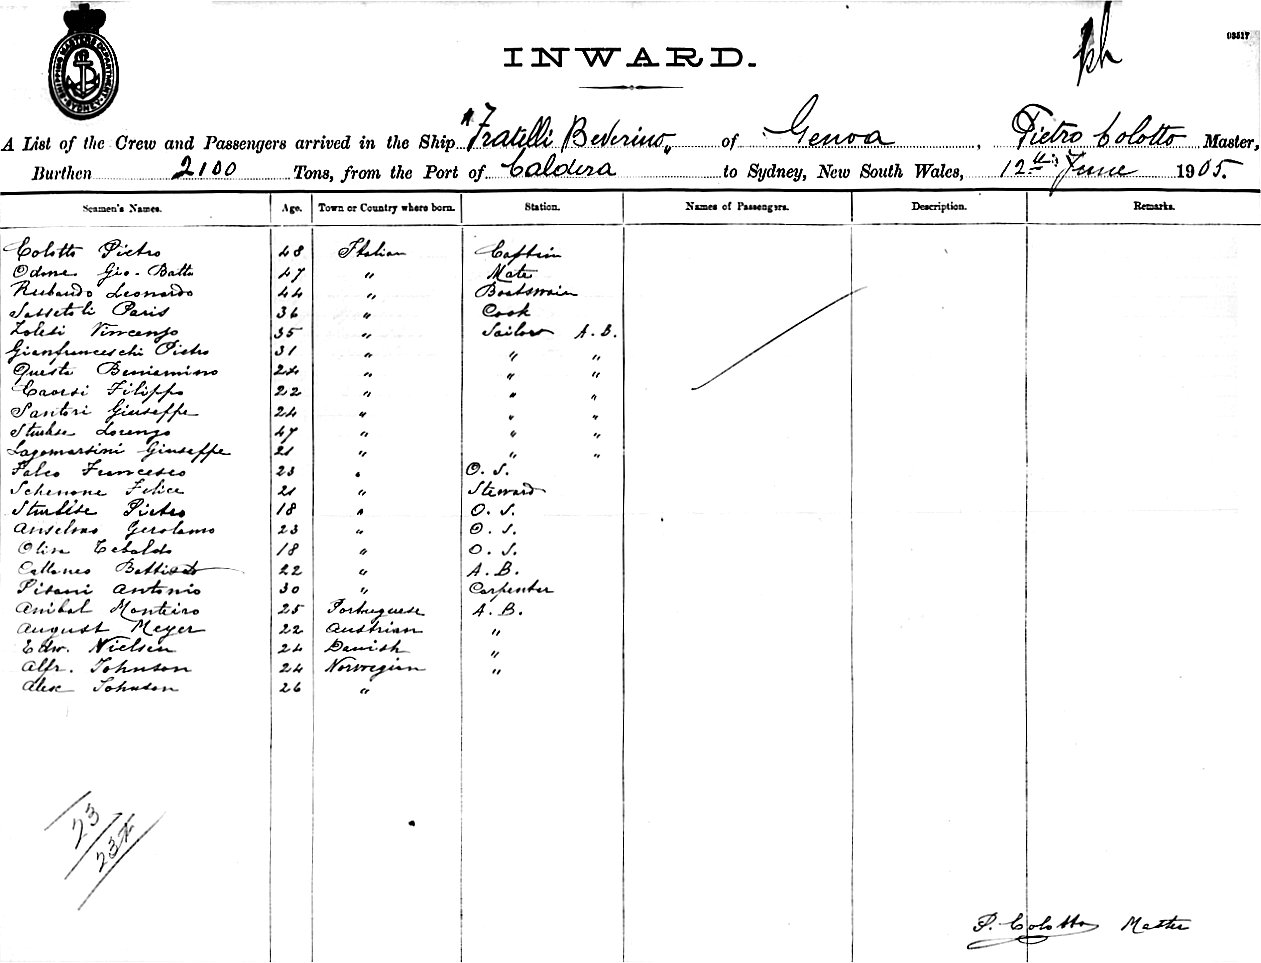 SHIPPING MASTER'S DEPARTMENT SYDNEY
03517
INWARD.
A List of the Crew and Passengers arrived in the Ship "Fratelli Beverino" of Genoa, Pietro Colotto Master,
Burthen 2100 Tons, from the Port of Caldera to Sydney, New South Wales, 12th June 1905.
Seamen's Names. Age. Town or Country where born. Station. Names of Passengers. Description. Remarks.
Colotto Pietro 48 Italian Captain
Odone Gio. Batta 47 " Mate
Rubando Leonardo 44 " Boatswain
Sassetoli Paris 36 " Cook
Zolesi Vincenzo 35 " Sailor A.B.
Gianfranceschi Pietro 31 " " "
Questa Beniamino 24 " " "
Caorsi Filippo 22 " " "
Santori Giuseppe 24 " " "
Sturlese Lorenzo 47 " " "
Lagomarsini Giuseppe 21 " " "
Falco Francesco 23 " O. S.
Schenone Felice 21 " Steward
Sturlese Pietro 18 " O. S.
Anselmo Gerolamo 23 " O. S.
Oliva Tebaldo 18 " O. S.
Cattaneo Battista 22 " A. B.
Pisani Antonio 30 " Carpenter
Anibal Monteiro 25 Portuguese A. B.
August Meyer 22 Austrian "
Edw. Nielsen 24 Danish "
Alfr. Johnson 24 Norwegian "
Alex Johnson 26 "
23
23
P. Colotto Master